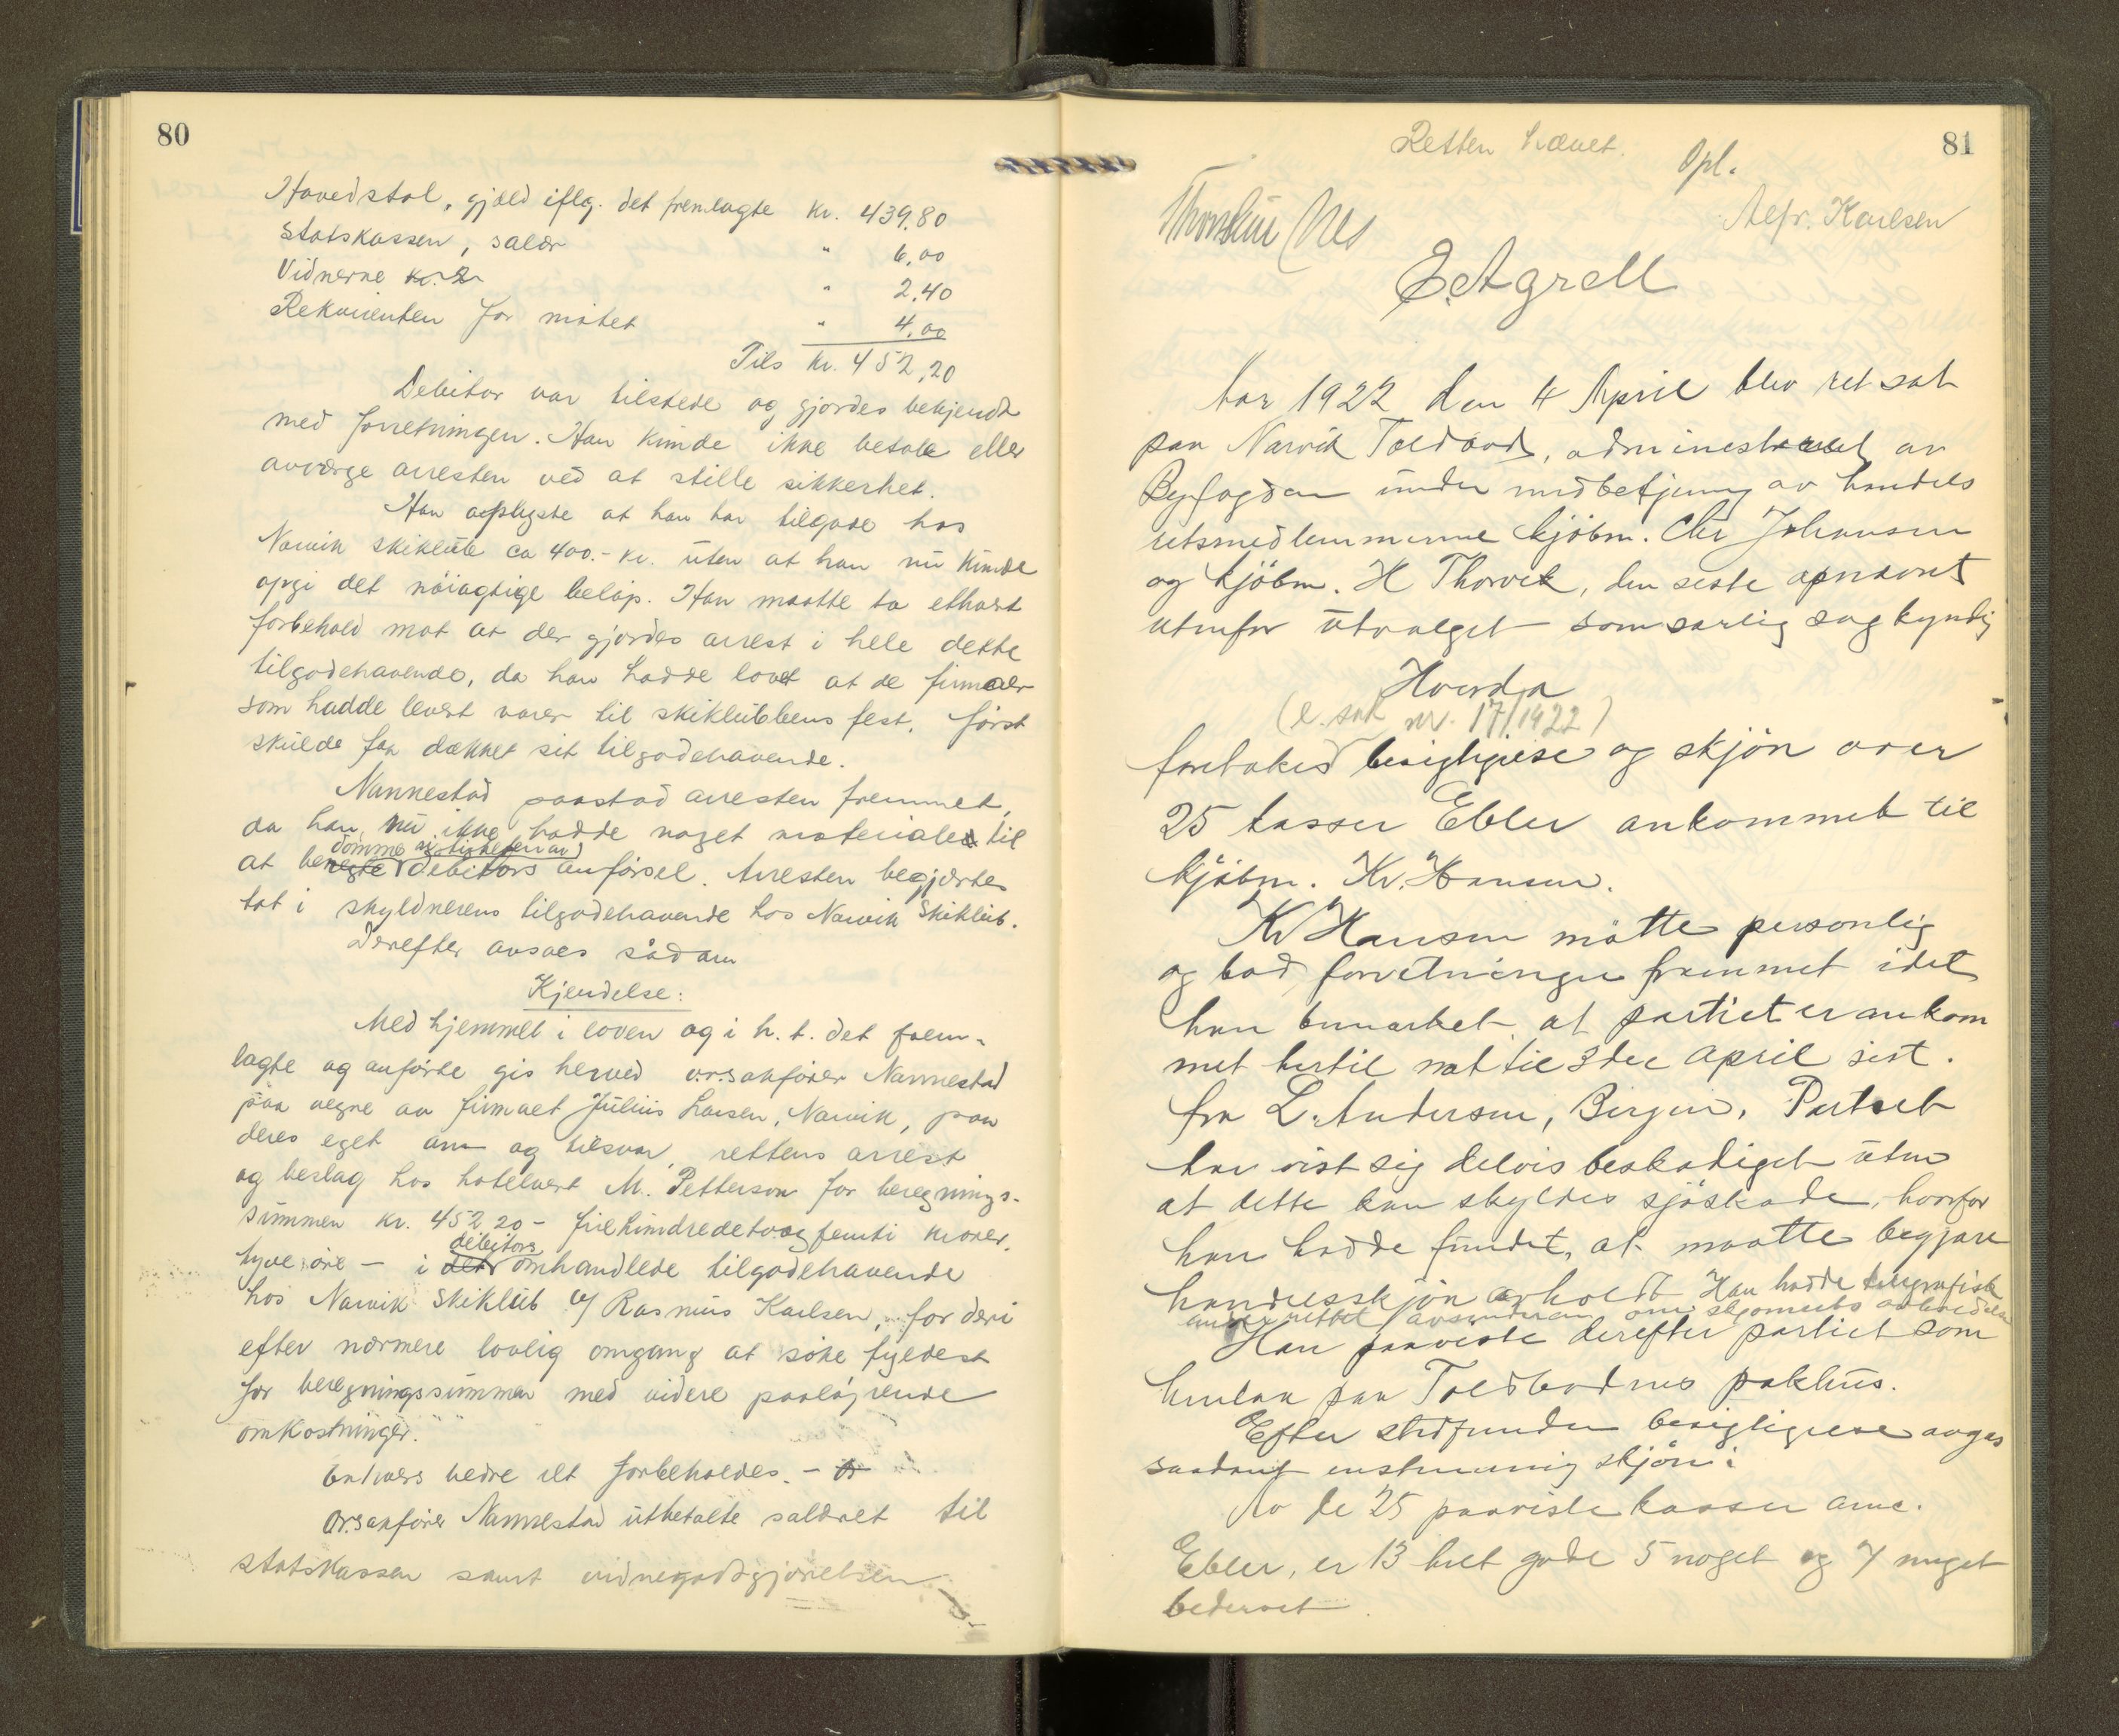 80
Hovedstol, gjæld iflg. det fremlagte kr. 439,80
Statskassen, salær " 6,00
Vidnerne kr. 2 " 2,40
Rekvirenten for møtet " 4,00
Tils kr. 452,20
Debitor var tilstede og gjordes bekjendt
med forretningen. Han kunde ikke betale eller
avværge arresten ved at stille sikkerhet.
Han oplyste at han har tilgode hos
Narvik skiklub ca 400.- kr. uten at han nu kunde
opgi det nøiagtige beløp. Han maatte ta ethvert
forbehold mot at der gjordes arrest i hele dette
tilgodehavende, da han hadde lovet at de firmaer
som hadde levert varer til skiklubbens fest, først
skulde faa dækket sit tilgodehavende.
Nannestad paastod arresten fremmet,
da han nu ikke hadde noget materiale til
dømme rigtigheten av
at benegte debitors anførsel. Arresten begjærtes
tat i skyldnerens tilgodehavende hos Narvik Skiklub.
Derefter avsaes sådan
Kjendelse:
Med hjemmel i loven og i h. t. det frem-
lagte og anførte gis herved o.r.sakfører Nannestad
paa vegne av firmaet Julius Larsen, Narvik, paa
deres eget an- og tilsvar, rettens arrest
og beslag hos hotelvert M. Petterson for beregnings-
summen kr. 452 20 - firehundredetoogfemti kroner,
debitors
tyve øre - i det omhandlede tilgodehavende
hos Narvik Skiklub v/ Rasmus Karlsen, for deri
efter nærmere lovlig omgang at søke fyldest
for beregningssummen med videre paaløpende
omkostninger."
Enhvers bedre ret forbeholdes. -
Orsakfører Nannestad utbetalte salæret til
statskassen samt vidnegodtgjørelsen
81
Retten hævet.
Opl.
Alfr. Karlsen
E. Agrell
Aar 1922 den 4 April blev ret sat
paa Narvik Toldbod, administreret av
Byfogden under medbetjening av handels
retsmedlemmerne kjøbm. Chr Johansen
og kjøbm. H Thorvik, den siste opnævnt
utenfor utvalget som særlig sagkyndig
Hvorda
(l. sak nr. 17/1922)
foretokes besigtigelse og skjøn over
25 kasser Ebler ankommet til
kjøbm. Kr. Hansen.
Kr Hansen møtte personlig
og bad forretningen fremmet idet
han bemerket at partiet er ankom
met hertil nat til 3die april sist.
fra L. Andersen, Bergen. Partiet
har vist sig delvis beskadiget uten
at dette kan skyldes sjøskade, hvorfor
han hadde fundet, at maatte begjære
handelsskjøn avholdt. Han hadde telegrafisk
underrettet avsenderen om skjønnets avholdelse
Han paaviste derefter partiet som
henlaa paa Toldbodens pakhus.
Efter stedfunden besigtigelse avgas
saadant enstemmig skjøn:
Av de 25 paaviste kasser amc.
Ebler, er 13 helt gode 5 noget og 7 meget
bedervet